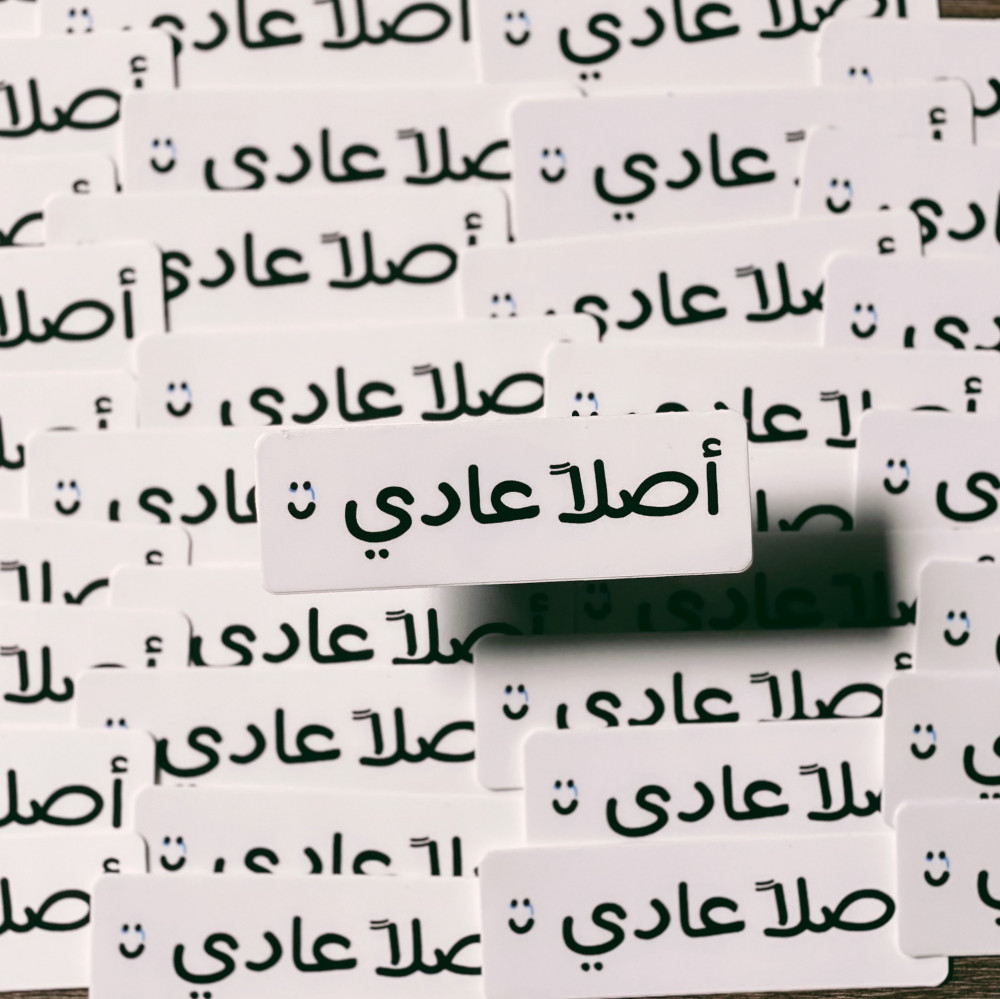 أصلاً عادي